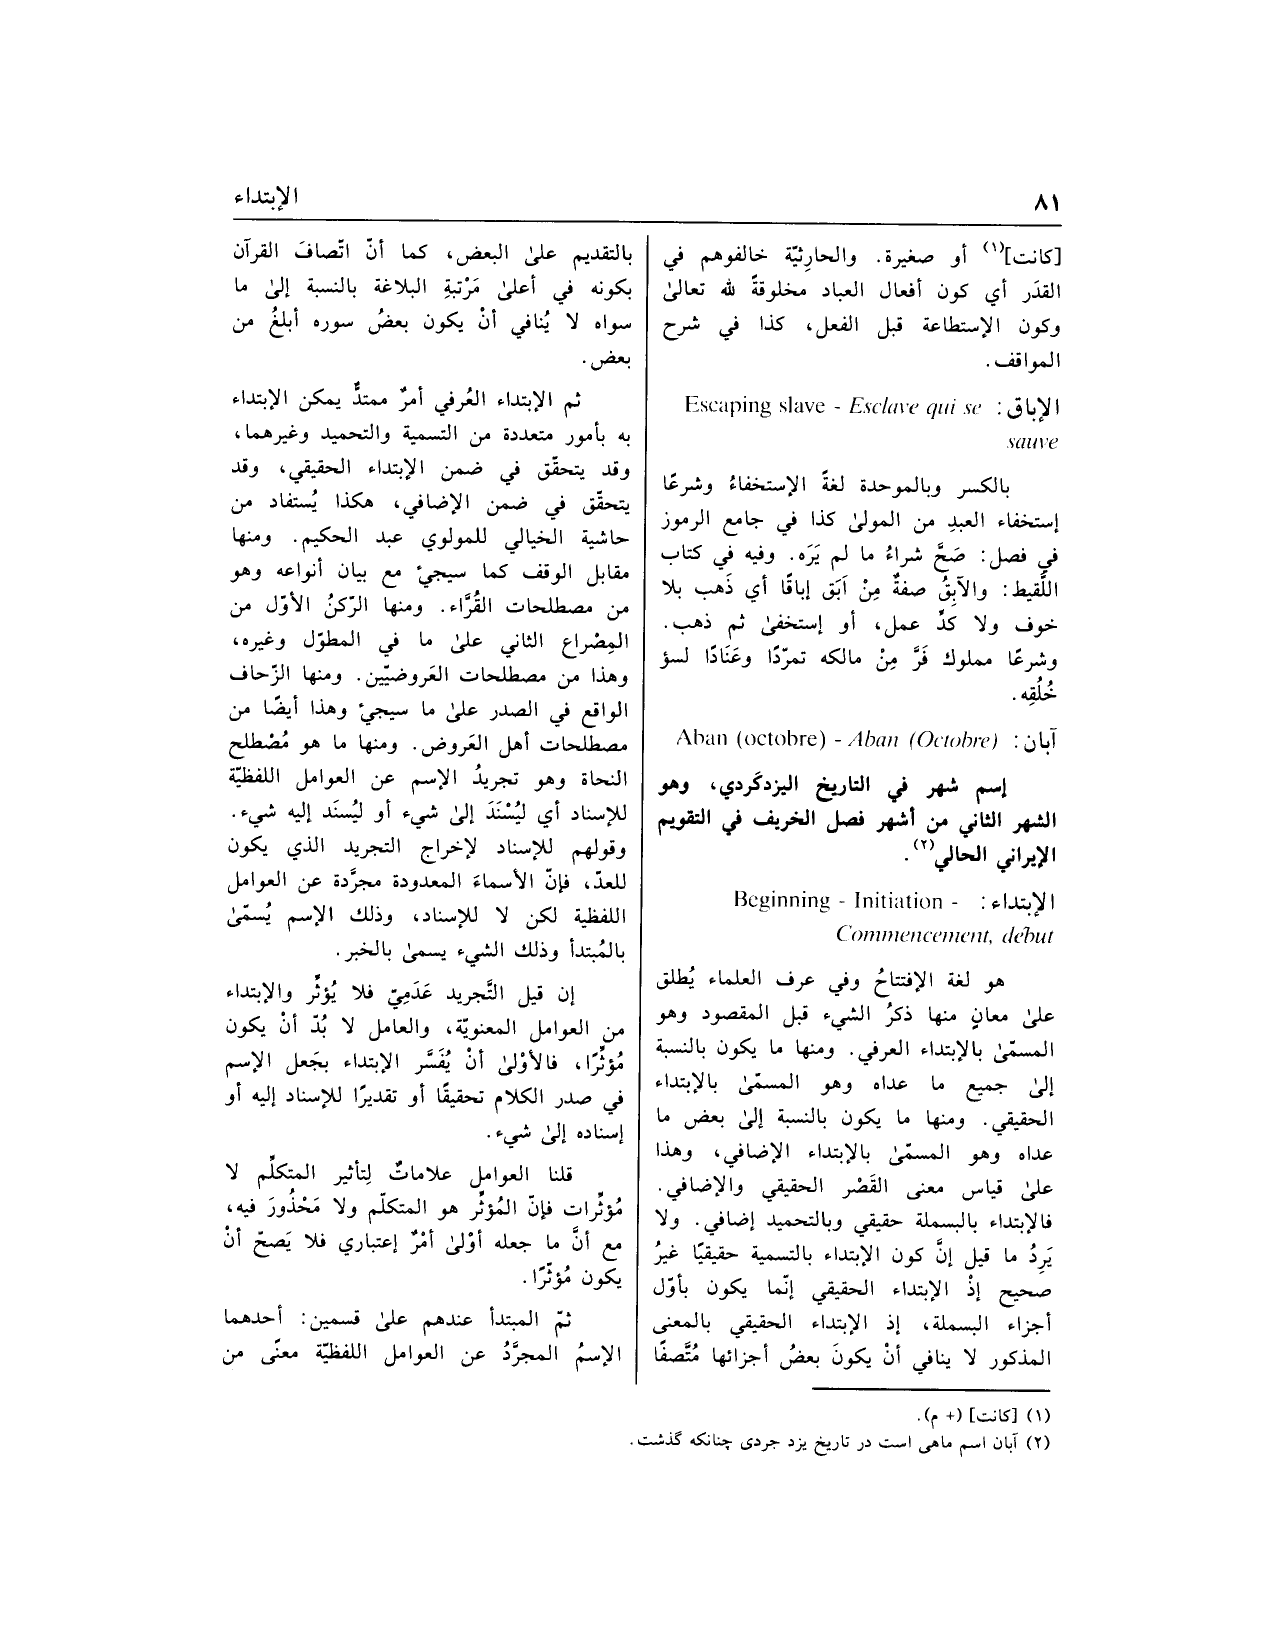 ٨١
الإبتداء
[كانت](١) أو صغيرة. والحارثيّة خالفوهم في
القدَر أي كون أفعال العباد مخلوقةً لله تعالىٰ
وكون الإستطاعة قبل الفعل، كذا في شرح
المواقف.
الإباق: Escaping slave - Esclave qui se
sauve
بالكسر وبالموحدة لغةً الإستخفاءُ وشرعًا
إستخفاء العبدِ من المولىٰ كذا في جامع الرموز
في فصل: صَحَّ شراءُ ما لم يَرَه. وفيه في كتاب
اللَّقيط: والآبِقُ صفةٌ مِنْ اَبَق إباقًا أي ذَهب بلا
خوف ولا كدِّ عمل، أو إستخفىٰ ثم ذهب.
وشرعًا مملوك فَرَّ مِنْ مالكه تمرّدًا وعَنَادًا لسؤ
خُلُقِه.
آبان: Aban (octobre) - Aban (Octobre)
إسم شهر في التاريخ اليزدگردي، وهو
الشهر الثاني من أشهر فصل الخريف في التقويم
الإيراني الحالي(٢).
الإبتداء: Beginning - Initiation -
Commencement, début
هو لغة الإفتتاحُ وفي عرف العلماء يُطلق
علىٰ معانٍ منها ذكرُ الشيء قبل المقصود وهو
المسمّىٰ بالإبتداء العرفي. ومنها ما يكون بالنسبة
إلىٰ جميع ما عداه وهو المسمّىٰ بالإبتداء
الحقيقي. ومنها ما يكون بالنسبة إلىٰ بعض ما
عداه وهو المسمّىٰ بالإبتداء الإضافي، وهذا
علىٰ قياس معنى القَصْر الحقيقي والإضافي.
فالإبتداء بالبسملة حقيقي وبالتحميد إضافي. ولا
يَرِدُ ما قيل إنَّ كون الإبتداء بالتسمية حقيقيًا غيرُ
صحيح إذْ الإبتداء الحقيقي إنّما يكون بأوّل
أجزاء البسملة، إذ الإبتداء الحقيقي بالمعنى
المذكور لا ينافي أنْ يكونَ بعضُ أجزائها مُتَّصفًا
بالتقديم علىٰ البعض، كما أنّ اتّصافَ القرآن
بكونه في أعلىٰ مَرْتبةِ البلاغة بالنسبة إلىٰ ما
سواه لا يُنافي أنْ يكون بعضُ سوره أبلغُ من
بعض.
ثم الإبتداء العُرفي أمرٌ ممتدٌّ يمكن الإبتداء
به بأمور متعددة من التسمية والتحميد وغيرهما،
وقد يتحقّق في ضمن الإبتداء الحقيقي، وقد
يتحقّق في ضمن الإضافي، هكذا يُستفاد من
حاشية الخيالي للمولوي عبد الحكيم. ومنها
مقابل الوقف كما سيجيُ مع بيان أنواعه وهو
من مصطلحات القُرَّاء. ومنها الرّكنُ الأوّل من
المِصْراع الثاني علىٰ ما في المطوّل وغيره،
وهذا من مصطلحات العَروضيّين. ومنها الزّحاف
الواقع في الصدر علىٰ ما سيجيُ وهذا أيضًا من
مصطلحات أهل العَروض. ومنها ما هو مُصْطلح
النحاة وهو تجريدُ الإسم عن العوامل اللفظيّة
للإسناد أي ليُسْنَدَ إلىٰ شيء أو ليُسنَد إليه شيء.
وقولهم للإسناد لإخراج التجريد الذي يكون
للعدّ، فإنّ الأسماءَ المعدودة مجرَّدة عن العوامل
اللفظية لكن لا للإسناد، وذلك الإسم يُسمّىٰ
بالمُبتدأ وذلك الشيء يسمىٰ بالخبر.
إن قيل التَّجريد عَدَمِيّ فلا يُؤثِّر والإبتداء
من العوامل المعنويّة، والعامل لا بُدّ أنْ يكون
مُؤثِّرًا، فالأوْلىٰ أنْ يُفَسَّر الإبتداء بجَعل الإسم
في صدر الكلام تحقيقًا أو تقديرًا للإسناد إليه أو
إسناده إلىٰ شيء.
قلنا العوامل علاماتٌ لِتأثير المتكلِّم لا
مُؤثِّرات فإنّ المُؤثِّر هو المتكلّم ولا مَحْذُورَ فيه،
مع أنَّ ما جعله أوْلىٰ أمْرٌ إعتباري فلا يَصحّ أنْ
يكون مُؤثّرًا.
ثمّ المبتدأ عندهم علىٰ قسمين: أحدهما
الإسمُ المجرَّدُ عن العوامل اللفظيّة معنًى من
(١) [كانت] (+ م).
(٢) آبان اسم ماهى است در تاريخ يزد جردى چنانكه گذشت.